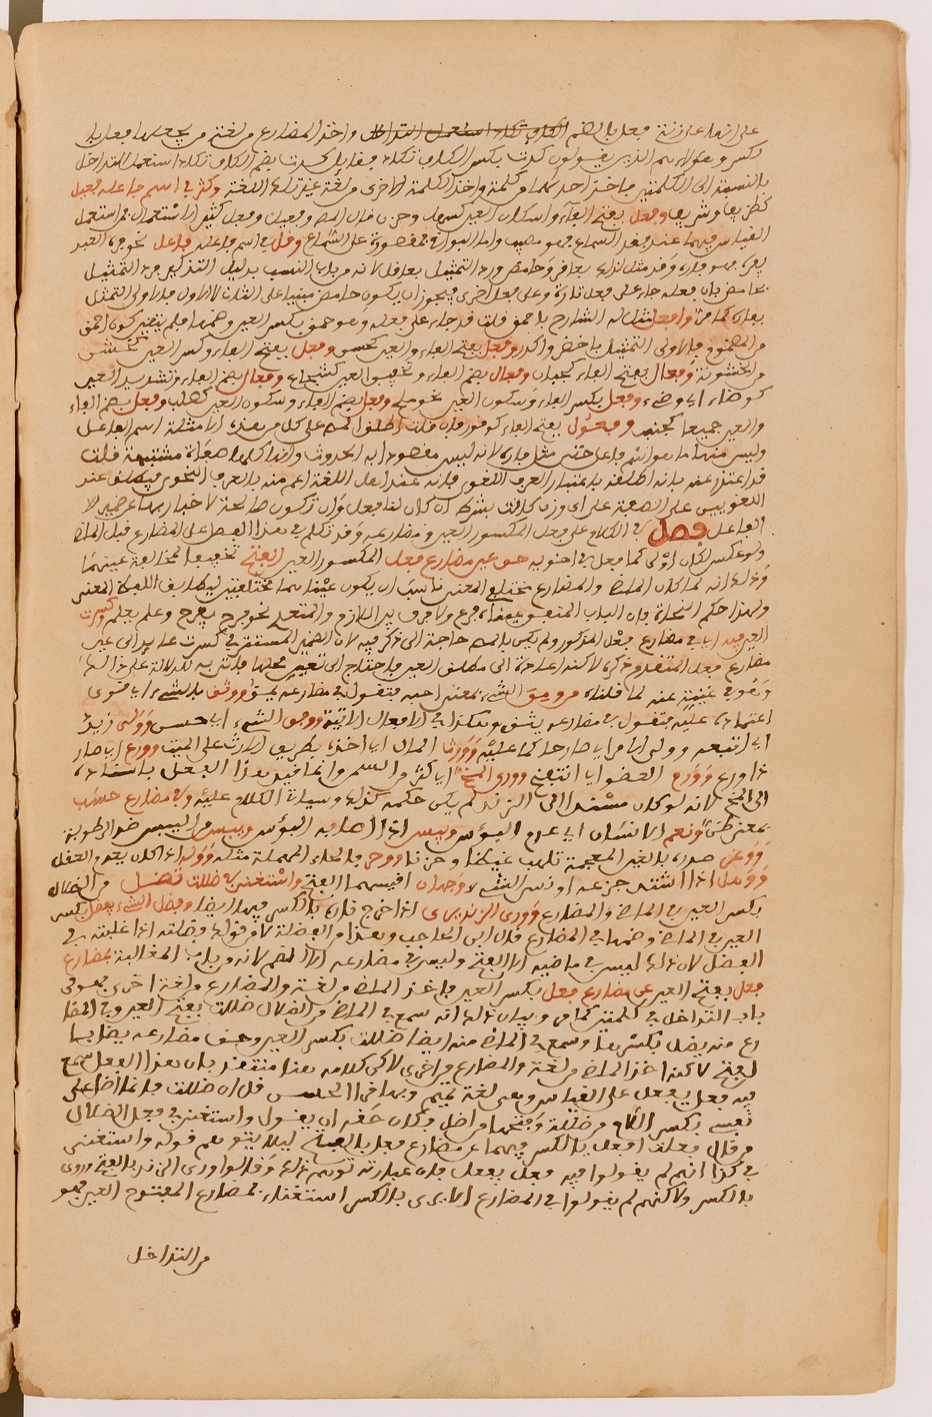 على انهما على زنة فعل بالضم الكاف تكاد استعمل التداخل واخذ المضارع من لغة من يجعلها فعل بالـ
كسر وهؤلاء هم الذين يقولون كدت بكسر الكاف تكاد فقابل كدت بضم الكاف تكاد استعمل التداخل
بالنسبة الى الكلمتين فاخذ احد كلماه كلمة واخذ الكلمة الاخرى من لغة غير تلك اللغة وكثر في اسم فاعله فعيل
كظريف وشريف وفعل بفتح الفاء واسكان العين كسهل وحزن قال المص وفعيل وفعل كثير الاستعمال فمن استعمل
القياس فيهما عند فقد السماع فهو مصيب واما البواقي فمقصورة على السماع وقل في اسم فاعله فاعل نحو فره العبد
يفره فهو فاره وقد مثل لذلك بعاقر وحامض ورد التمثيل بعاقر لانه من باب النسب بدليل التذكير ورد التمثيل
بحامض بان فعله جاء على فعل تارة وعلى فعل اخرى فيجوز ان يكون حامض مبنيا على الثلاث لا الاول فالاولى التمثيل
بفاره كما مر وافعل مثل له الشارح باحمق فقلت قد جاء على فعله وهو حمق بكسر العين وضمها فلم يتعين كون احمق
من المضموم فالاولى التمثيل باخضر واكدر وفعل بفتح الفاء والعين كحسن وفعل بفتح الفاء وكسر العين كخشن
من الخشونة وفعال بفتح الفاء كجبان وفعال بضم الفاء وتخفيف العين كشجاع وفعال بضم الفاء وتشديد العين
كوضاء اي وضيء وفعل بكسر الفاء وسكون العين نحو ملح وفعل بضم الفاء وسكون العين كصلب وفعل بضم الفاء
والعين جميعا كجنب وفعول بفتح الفاء كوقور فان قلت اطلق المص على كل من هذه الامثلة اسم الفاعل
وليس منها ما هو اسم فاعل حتى مثل فاره لانه ليس مقصودا به الحدوث وانما كلها صفات مشبهة قلت
قد اعتذر عنه بانه اطلقه باعتبار العرف اللغوي فانه عند اهل اللغة اعم منه بالعرف النحوي فيطلق عند
اللغويين على الصفة على اي وزن كانت بشرط ان كان لها فعل وان تكون صالحة للاخبار بها عن ضمير لا
الفاعل فصل في الكلام على فعل المكسور العين ومضارعه وقد تكلم في هذا الفصل على المضارع قبل الماضي
ولو عكس لكان اولى كما فعل في اخويه حق عين مضارع فعل المكسور العين الفتح تخفيفا لمخالفة عينهما
وذلك انه لما كان الماضي والمضارع مختلفي المعنى ناسب ان يكون عيناهما مختلفتين ليطابق اللفظ المعنى
ولهذا حكم النحاة بان الباب المتفق عيناه فرع ولا فرق بين اللازم والمتعدي نحو فرح يفرح وعلم يعلم وكسرت
العين فيه اي في مضارع فعل المذكور ولم يكن بالمص حاجة الى ذكر فيه لان الضمير المستقر في كسرت عائد الى عين
مضارع فعل المتقدم ذكره لاكنه اعاده الى مطلق العين فاحتاج الى تعيين محلها فاتى به للدلالة على ذلك
وهو في غنية عنه لما قلناه من ومق الشيء بمعنى احبه فتقول في مضارعه يمق ووثق بالشيء اي قوي
اعتماده عليه فتقول في مضارعه يثق وهكذا في الافعال الاتية ووفق الشيء اي حسن وولي زيدا
اي اتبعه وولي الامر اي صار حاكما عليه وورث المال اي اخذه بطريق الارث على الميت وورع اي صار
ذا ورع وورم العضو اي انتفخ ووري المخ اي كثر من السمن وانما قيد هذا الفعل باسناده
الى المخ لانه لو كان مسندا الى الزند لم يكن حكمه كذلك وسيأتي الكلام عليه وفي مضارع حسب
بمعنى ظن ونعم الانسان اي عدم البؤس وبئس اذا اصابه البؤس ويبس من اليبس ضد الرطوبة
ووغر صدره بالغين المعجمة تلهب غيظا وحزنا ووحر بالحاء المهملة مثله ووله اذا كان يعدم العقل
ووهل اذا اشتد جزعه او نسي الشيء وجهان اقيسهما الفتح واستغني في ضللت تضل من الضلال
بكسر العين في الماضي والمضارع ووري الزند يري اذا اخرج ناره بالكسر فيهما ايضا وفضل الشيء يفضل بكسر
العين في الماضي وضمها في المضارع قال ابن الحاجب وهذا من الفضلة لا من قولك فضلته اذا غلبته في
الفضل لان ذلك ليس في ماضيه الا الفتح وليس في مضارعه الا الضم لانه من باب المغالبة بمضارع
فعل بفتح العين عن مضارع فعل بكسر العين فاخذ الماضي من لغة والمضارع من لغة اخرى فهو في
باب التداخل في كلمتين كما مر وبيان ذلك انه سمع في الماضي من الضلال ضللت بفتح العين وفي المضا
رع منه يضل بكسرها وسمع في الماضي منه ايضا ضللت بكسر العين وحق مضارعه يضل بها
لفتح لاكنه اخذ الماضي من لغة والمضارع من اخرى لاكن كلامه هذا منتقد بان هذا الفعل سمع
فيه فعل يفعل على القياس وهي لغة تميم وبها قرأ الحسن قل ان ضللت فانما اضل على
نفسي بكسر اللام من ضللت وفتحها من اضل فكان حقه ان يقول واستغني في فعل الضلال
من قال يفعل افعل بالكسر فيهما عن مضارع فعل بالفتح ليلا يتوهم قوله واستغنى
في كذا انهم لم يقولوا فيه فعل يفعل فان عبارته توهم ذلك وقالوا وري الزند بالفتح ووري
بالكسر ولاكنهم لم يقولوا في المضارع الا يري بالكسر استغناء بمضارع المفتوح العين فهو
من التداخل